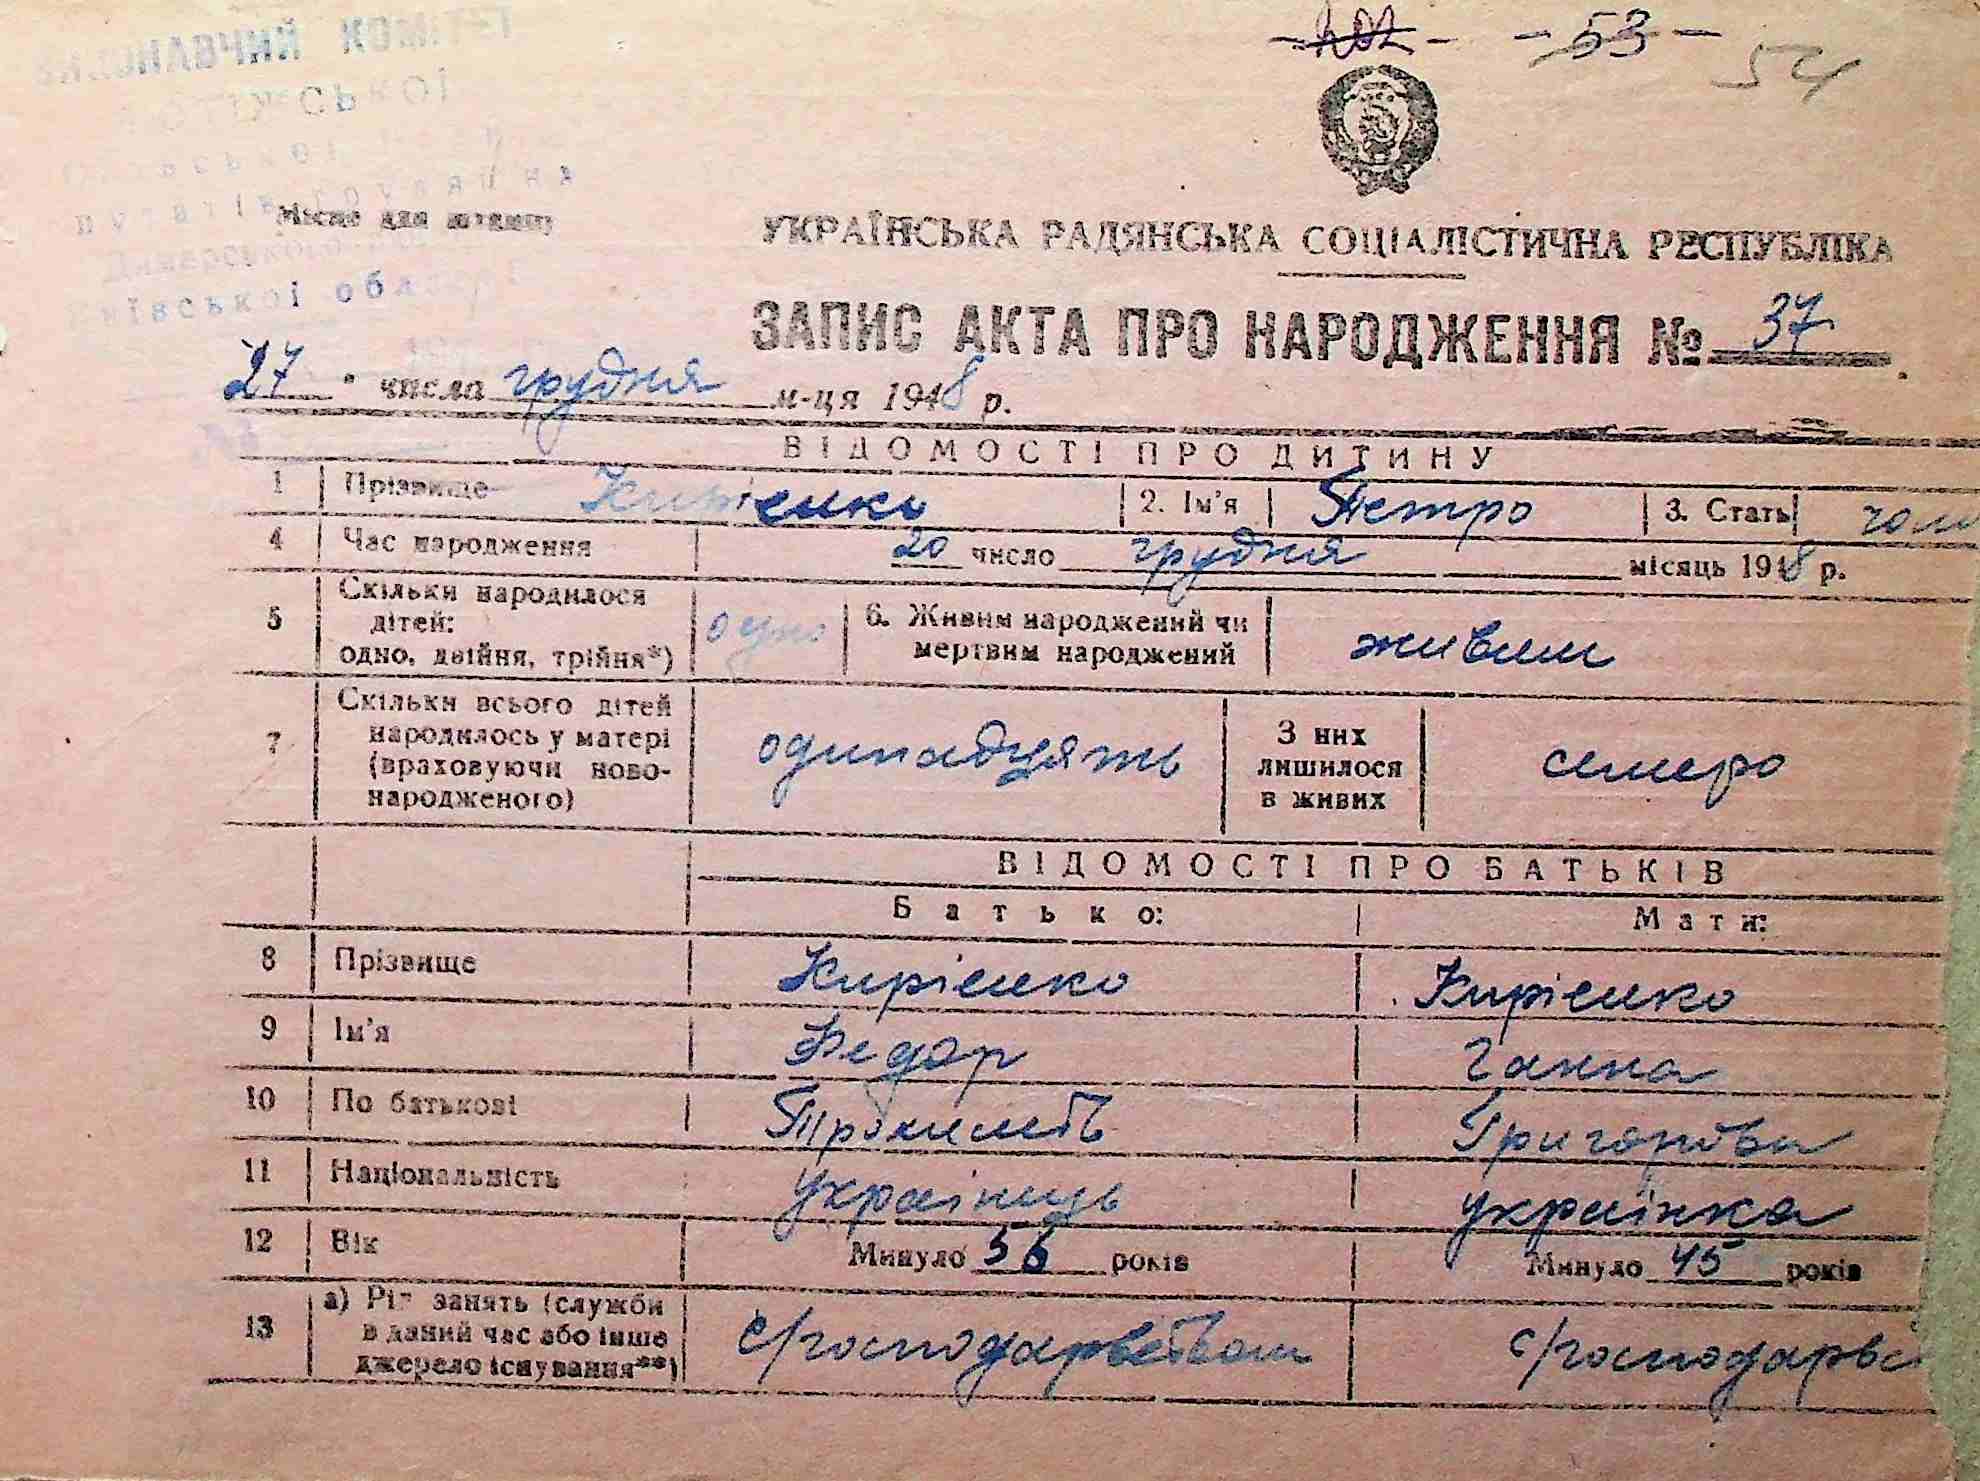 - 202 - - 53 - 54
ВИКОНАВЧИЙ КОМІТЕТ
Місце для штампу
Київської області
УКРАЇНСЬКА РАДЯНСЬКА СОЦІАЛІСТИЧНА РЕСПУБЛІКА
ЗАПИС АКТА ПРО НАРОДЖЕННЯ № 37
"27" числа грудня м-ця 1948 р.
ВІДОМОСТІ ПРО ДИТИНУ
1 Прізвище Кирієнко 2. Ім'я Петро 3. Стать чол
4 Час народження 20 число грудня місяць 1948 р.
5 Скільки народилося дітей: одно, двійня, трійня*) одно 6. Живим народжений чи мертвим народжений живим
7 Скільки всього дітей народилось у матері (враховуючи новонародженого) одинадцять З них лишилося в живих семеро
ВІДОМОСТІ ПРО БАТЬКІВ
Батько: Мати:
8 Прізвище Кирієнко Кирієнко
9 Ім'я Федор Ганна
10 По батькові Григоровн
11 Національність українець українка
12 Вік Минуло 56 років Минуло 45 років
13 а) Рід занять (служби в даний час або інше джерело існування**) с/господарством с/господарвс